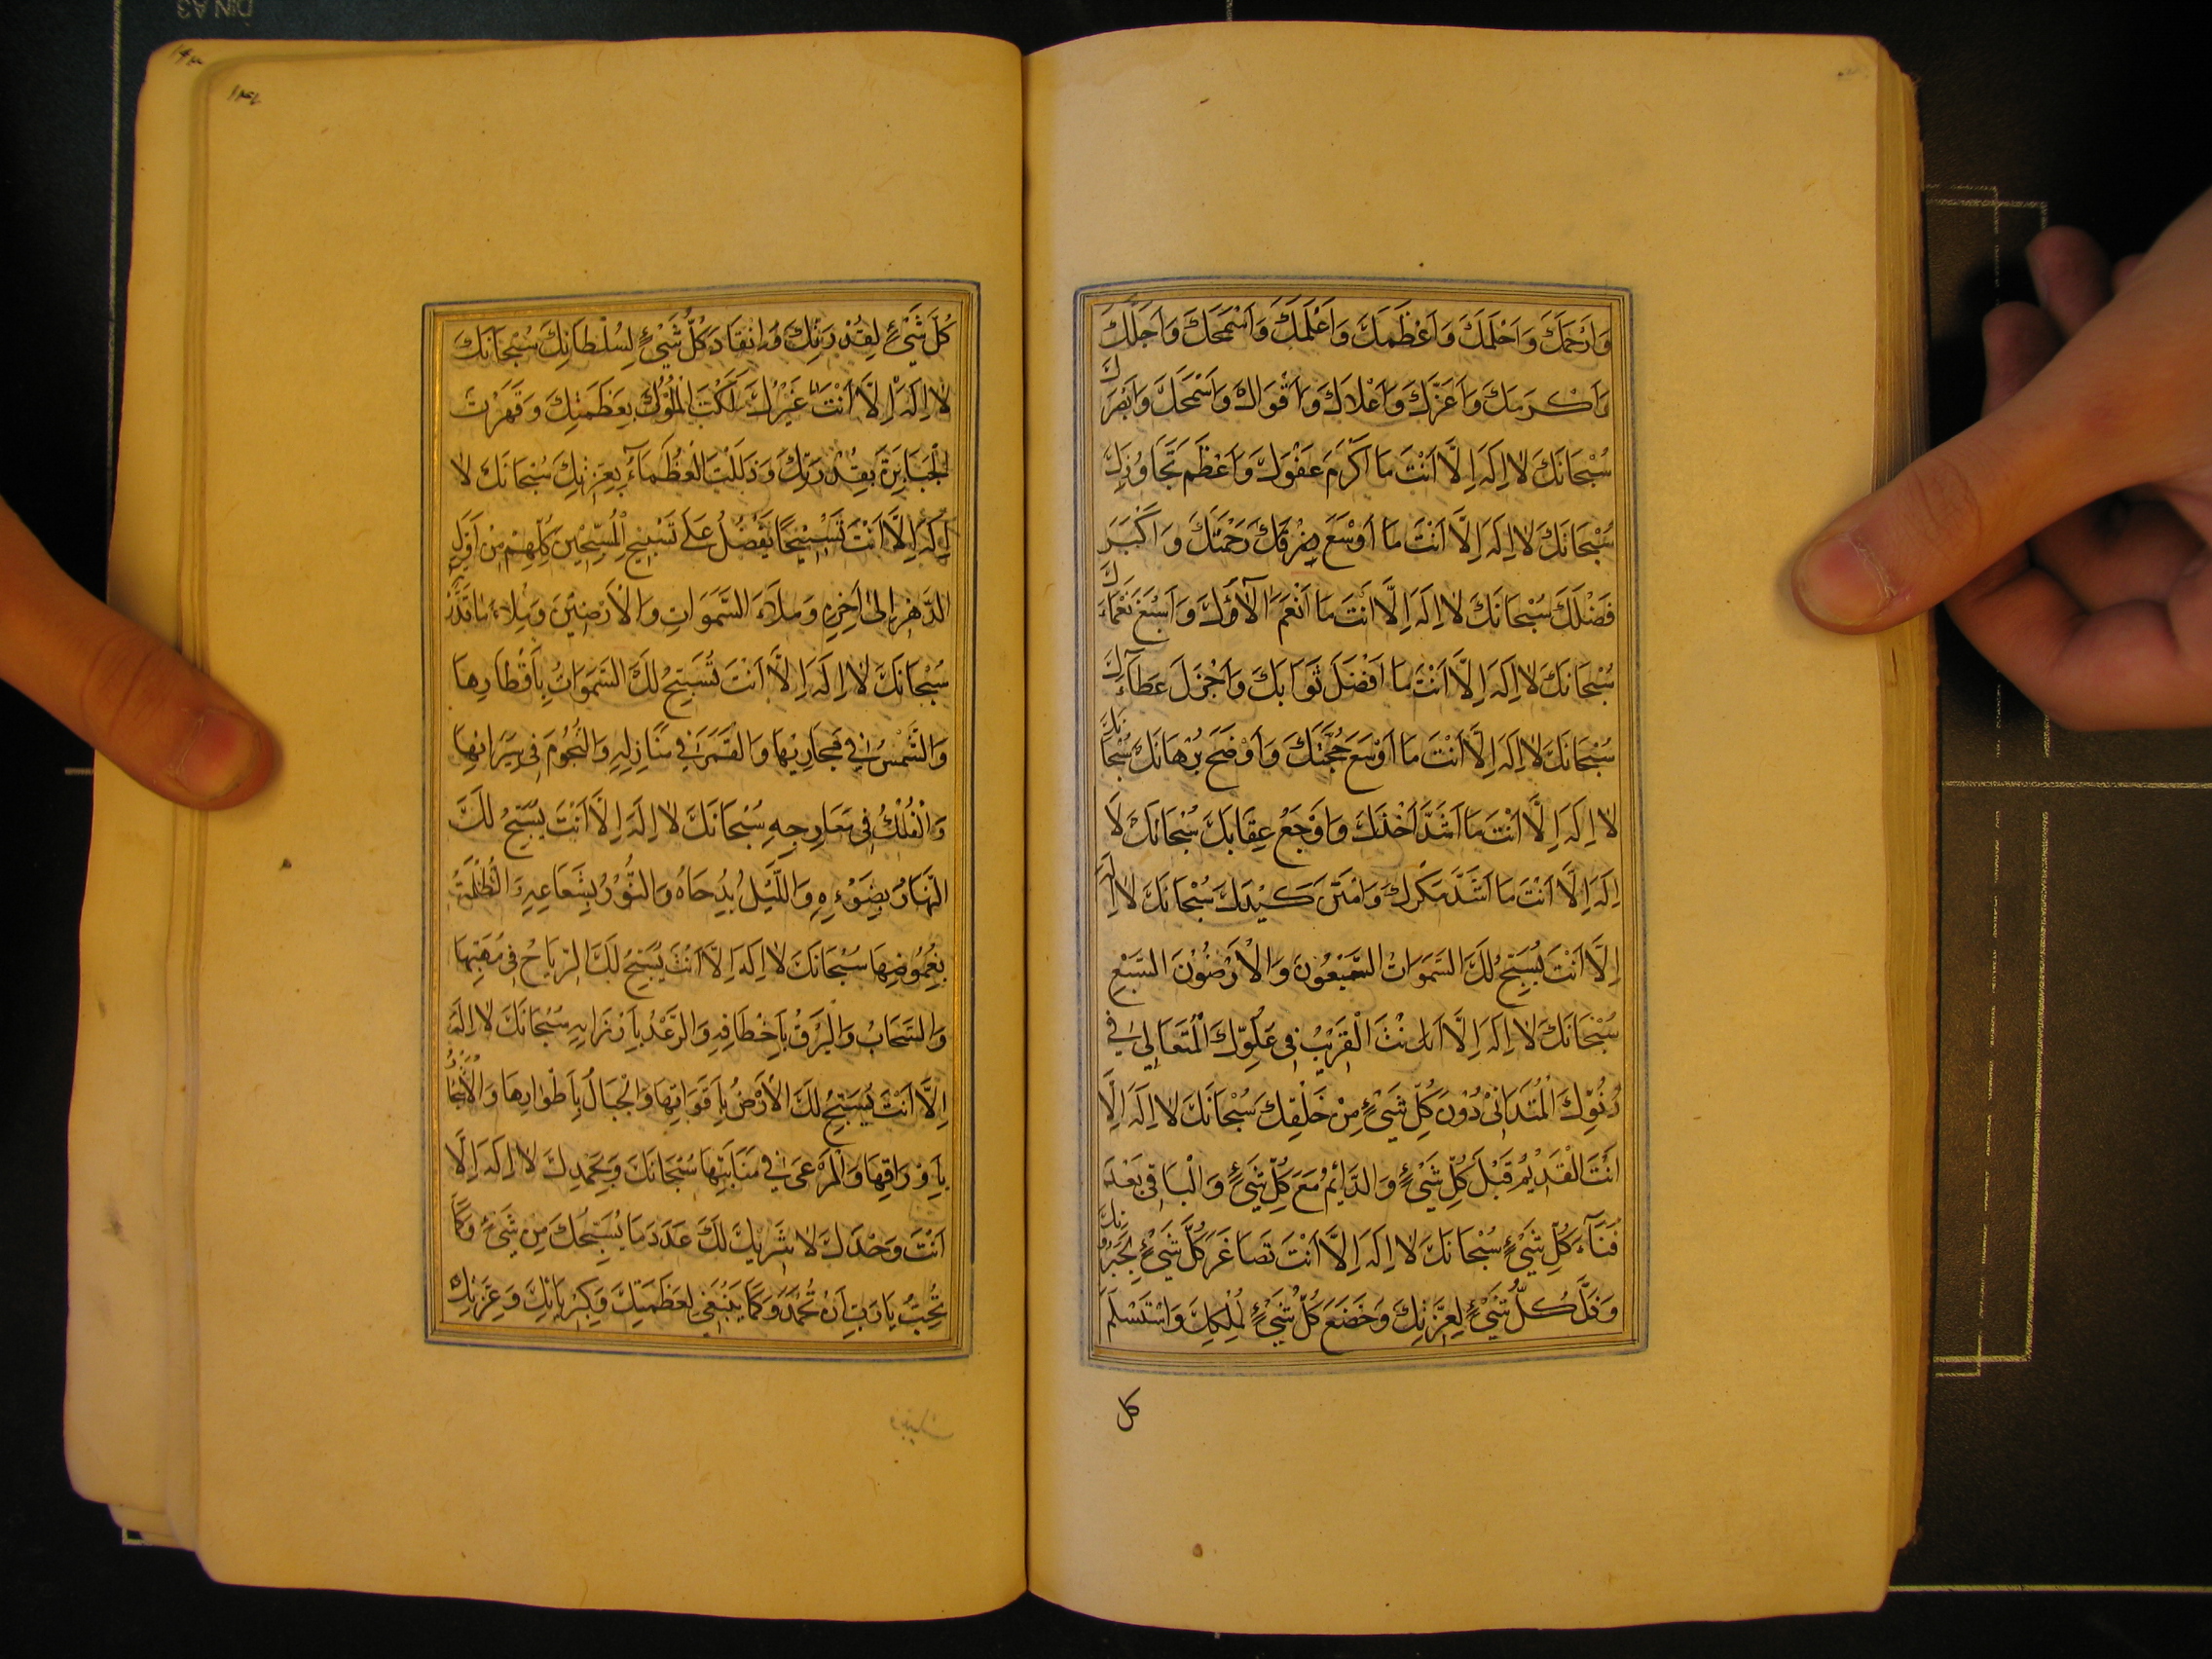 وَاَرْحَمَكَ وَاَحْلَمَكَ وَاَعْظَمَكَ وَاَعْلَمَكَ وَاَسْمَحَكَ وَاَجَلَّكَ
وَاَكْرَمَكَ وَاَعَزَّكَ وَاَعْلَاكَ وَاَقْوَاكَ وَاَسْمَحَكَ وَاَبْصَرَكَ
سُبْحَانَكَ لَا اِلَهَ اِلَّا اَنْتَ مَا اَكْرَمَ عَفْوَكَ وَاَعْظَمَ تَجَاوُزَكَ
سُبْحَانَكَ لَا اِلَهَ اِلَّا اَنْتَ مَا اَوْسَعَ رَحْمَتَكَ وَاَكْبَرَ
فَضْلَكَ سُبْحَانَكَ لَا اِلَهَ اِلَّا اَنْتَ مَا اَنْعَمَ اٰلَاؤُكَ وَاَسْبَغَ نَعْمَاءَكَ
سُبْحَانَكَ لَا اِلَهَ اِلَّا اَنْتَ مَا اَفْضَلَ ثَوَابَكَ وَاَجْزَلَ عَطَآءَكَ
سُبْحَانَكَ لَا اِلَهَ اِلَّا اَنْتَ مَا اَوْسَعَ حُجَّتَكَ وَاَوْضَحَ بُرْهَانَكَ سُبْحَانَكَ
لَا اِلَهَ اِلَّا اَنْتَ مَا اَشَدَّ اَخْذَكَ وَاَوْجَعَ عِقَابَكَ سُبْحَانَكَ لَا
اِلَهَ اِلَّا اَنْتَ مَا اَشَدَّ مَكْرَكَ وَاَمْتَنَ كَيْدَكَ سُبْحَانَكَ لَا اِلَهَ
اِلَّا اَنْتَ يُسَبِّحُ لَكَ السَّمَوَاتُ وَالْاَرْضُوْنَ السَّبْعِ
سُبْحَانَكَ لَا اِلَهَ اِلَّا اَنْتَ الْقَرِيْبُ فِى عُلُوِّكَ الْمُتَعَالِى فِى
دُنُوِّكَ الْمُتَدَانِىْ دُوْنَ كُلِّ شَيْءٍ مِنْ خَلْقِكَ سُبْحَانَكَ لَا اِلَهَ اِلَّا
اَنْتَ الْقَدِيْمُ قَبْلَ كُلِّ شَيْءٍ وَالدَّائِمُ مَعَ كُلِّ شَيْءٍ وَالْبَاقِى بَعْدَ
فَنَآءِ كُلِّ شَيْءٍ سُبْحَانَكَ لَا اِلَهَ اِلَّا اَنْتَ تَصَاغَرَ كُلُّ شَيْءٍ لِجَبَرُوتِكَ
وَذَلَّ كُلُّ شَيْءٍ لِعِزَّتِكَ وَخَضَعَ كُلُّ شَيْءٍ لِمُلْكِكَ وَاسْتَسْلَمَ
كل
كُلُّ شَيْءٍ لِقُدْرَتِكَ وَانْقَادَ كُلُّ شَيْءٍ لِسُلْطَانِكَ سُبْحَانَكَ
لَا اِلَهَ اِلَّا اَنْتَ مَلَكْتَ الْمُلُوْكَ بِعَظَمَتِكَ وَقَهَرْتَ
الْجَبَابِرَةَ بِقُدْرَتِكَ وَذَلَّلْتَ الْعُظَمَآءَ بِعِزَّتِكَ سُبْحَانَكَ لَا
اِلَهَ اِلَّا اَنْتَ تَسْبِيْحًا يَفْضُلُ عَلَى تَسْبِيْحِ الْمُسَبِّحِيْنَ كُلِّهِمْ مِنْ اَوَّلِ
الدَّهْرِ اِلَى اٰخِرِهِ وَمِلَاءَ السَّمَوَاتِ وَالْاَرْضِيْنَ وَمِلَاءَ
سُبْحَانَكَ لَا اِلَهَ اِلَّا اَنْتَ تُسَبِّحُ لَكَ السَّمَوَاتُ بِاَقْطَارِهَا
وَالشَّمْسُ فِى مَجَارِيْهَا وَالْقَمَرُ فِى مَنَازِلِهِ وَالنُّجُوْمُ فِى سَيَرَانِهَا
وَالْفُلْكُ فِى مَعَارِجِهِ سُبْحَانَكَ لَا اِلَهَ اِلَّا اَنْتَ يُسَبِّحُ لَكَ
النَّهَارُ بِضَوْءِهِ وَاللَّيْلُ بِدُجَاهُ وَالنُّوْرُ بِشُعَاعِهِ وَالظُّلْمَةُ
بِغُمُوضِهَا سُبْحَانَكَ لَا اِلَهَ اِلَّا اَنْتَ يُسَبِّحُ لَكَ الرِّيَاحُ فِى مَهَبِّهَا
وَالسَّحَابُ وَالْبَرْقُ بِاَخْطَافِهِ وَالرَّعْدُ سُبْحَانَكَ لَا اِلَهَ
اِلَّا اَنْتَ يُسَبِّحُ لَكَ الْاَرْضُ بِاَقْوَاتِهَا وَالْجِبَالُ بِاَطْوَارِهَا وَالْاَشْجَارُ
بِاَوْرَاقِهَا وَالْمَرْعَى فِى مَنَابِتِهَا سُبْحَانَكَ وَبِحَمْدِكَ لَا اِلَهَ اِلَّا
اَنْتَ وَحْدَكَ لَا شَرِيْكَ لَكَ عَدَدَ مَا يُسَبِّحُكَ مِنْ شَيْءٍ وَكَمَا
تُحِبُّ يَا رَبِّ اَنْ تُحْمَدَ وَكَمَا يَنْبَغِى لِعَظَمَتِكَ وَكِبْرِيَائِكَ وَعِزَّتِكَ